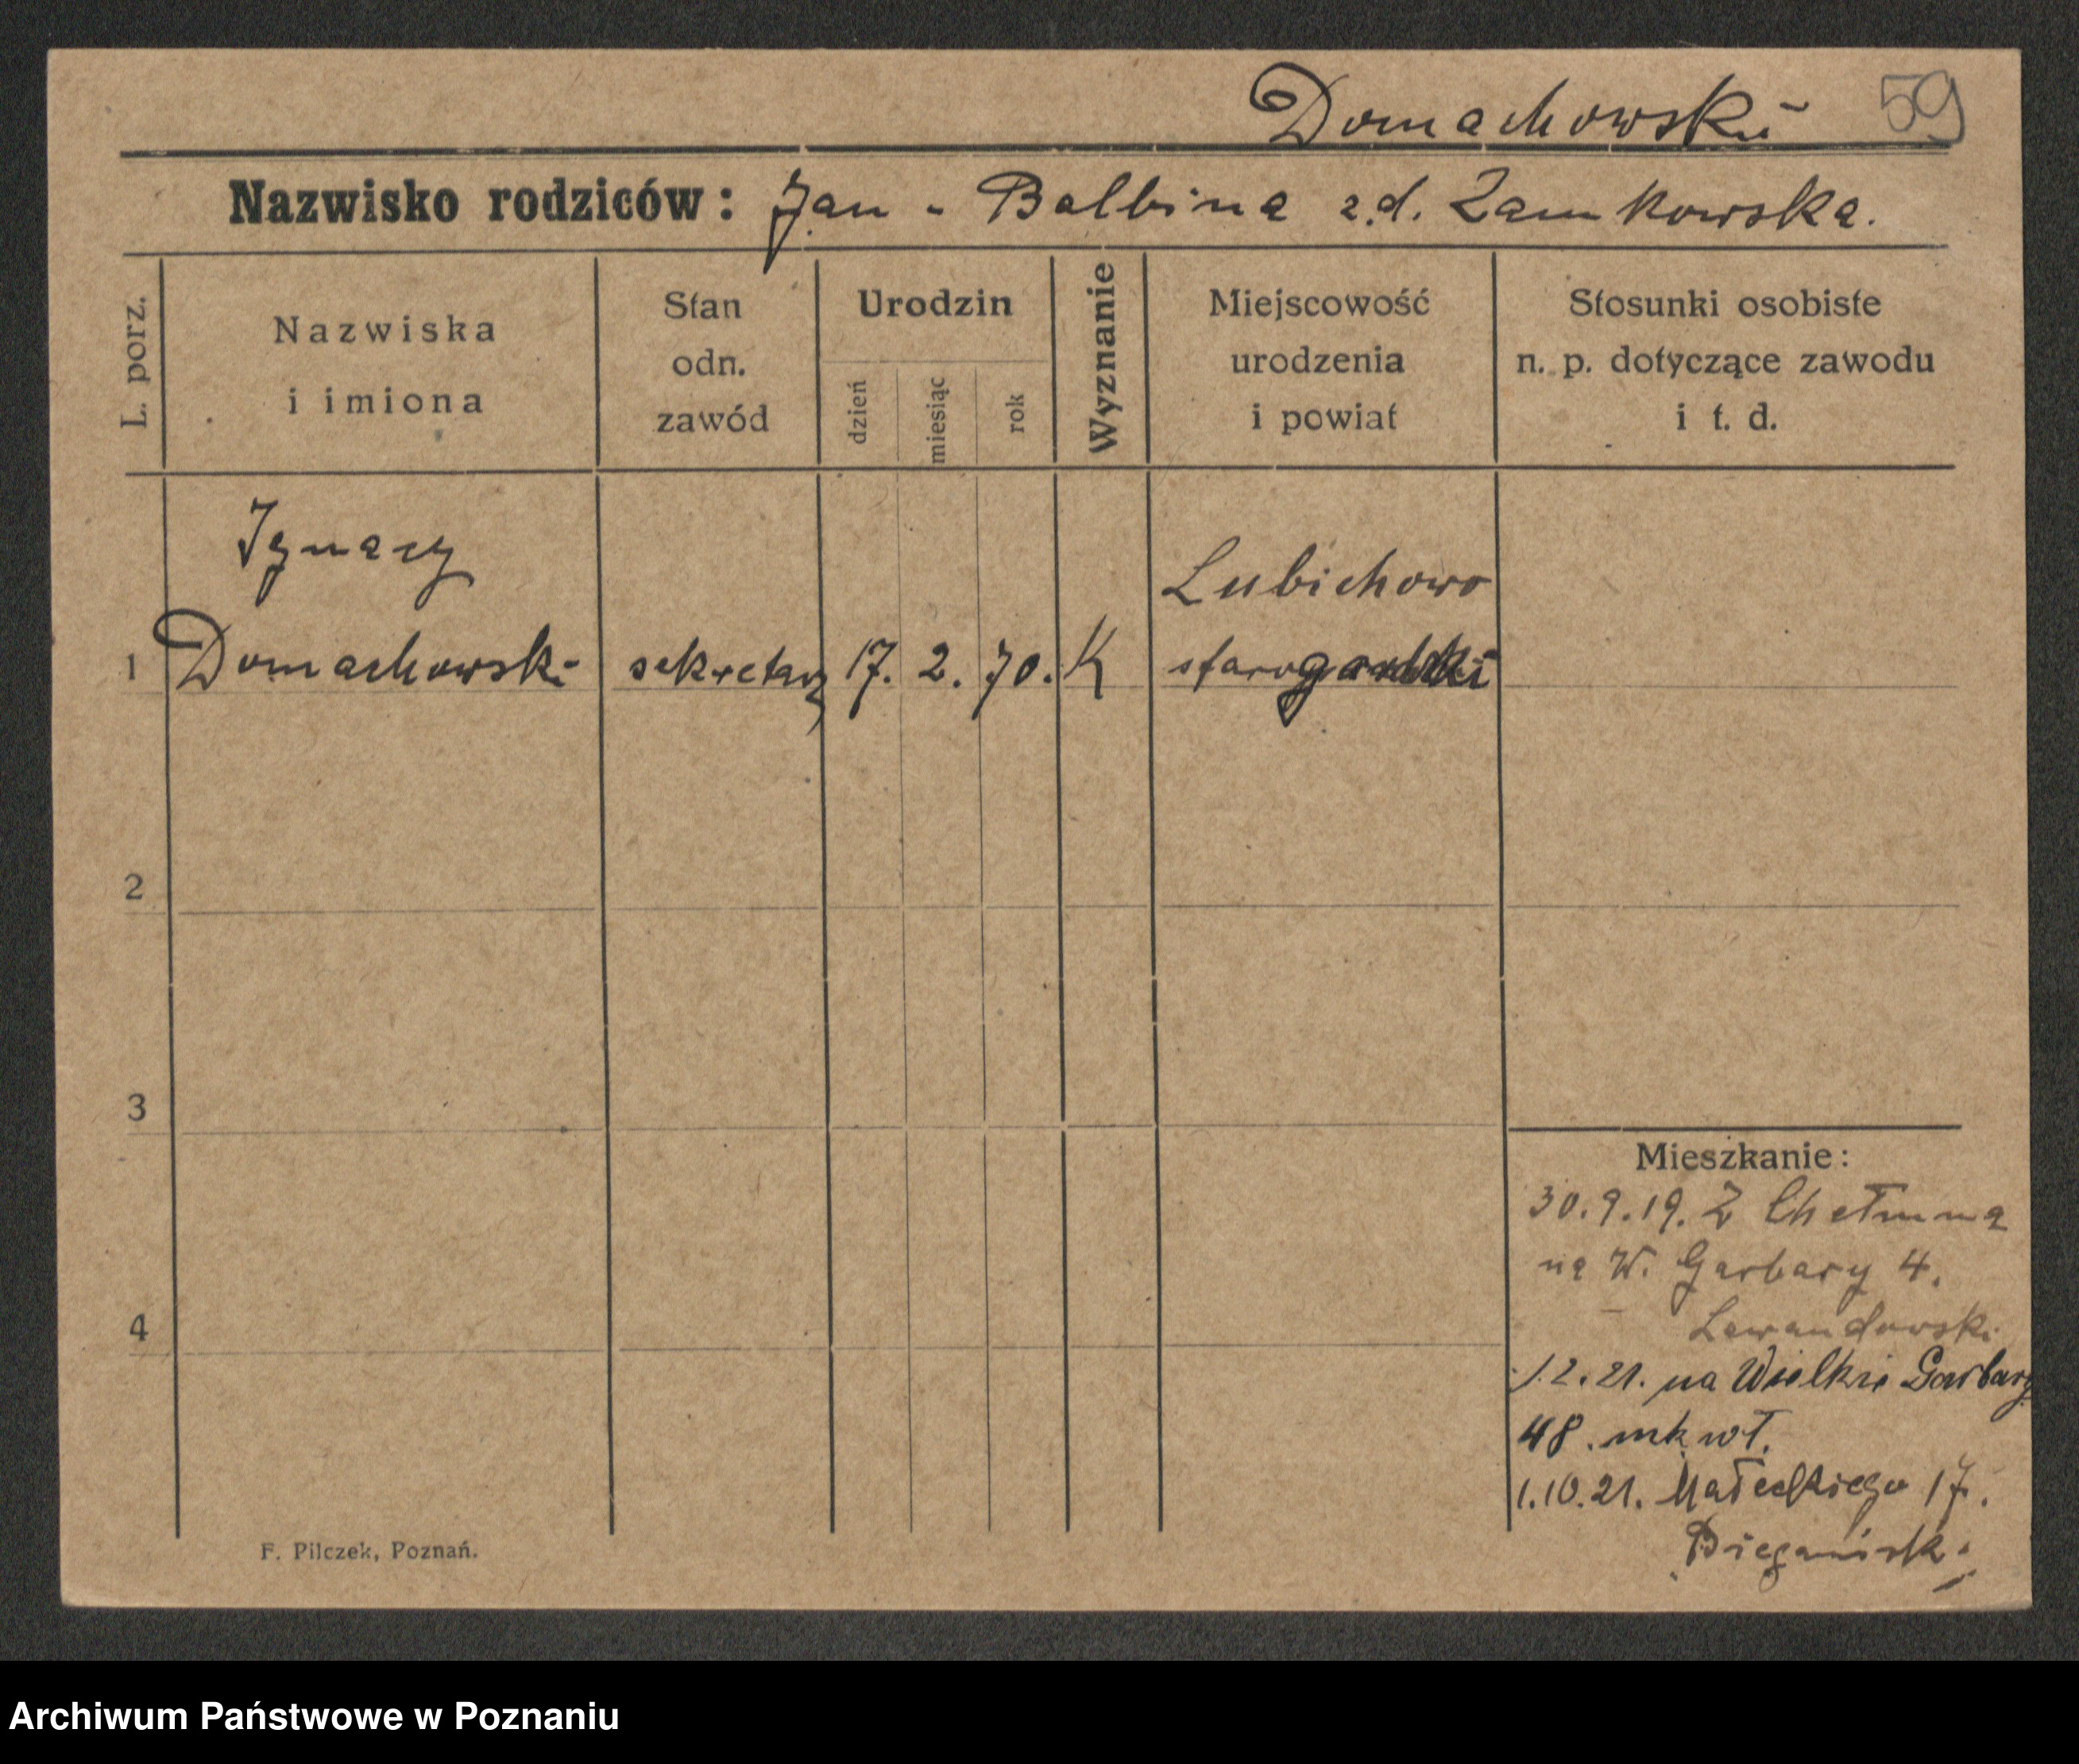 Domachowski 59
Nazwisko rodziców: Jan - Balbina z.d. Zamkowska.
L. porz.
Nazwiska
i imiona
Stan
odn.
zawód
Urodzin
dzień
miesiąc
rok
Wyznanie
Miejscowość
urodzenia
i powiat
Stosunki osobiste
n. p. dotyczące zawodu
i t. d.
Ignacy
Lubichowo
1 Domachowski sekretarz 17. 2. 70. K starogardzki
2
3
4
Mieszkanie:
30.9.19. Z Chełmna
na W. Garbary 4.
Lewandowski
1.2.21. na Wielkie Garbary
48. mk wł.
1.10.21. Małeckiego 17.
Biegański
F. Pilczek, Poznań.
Archiwum Państwowe w Poznaniu